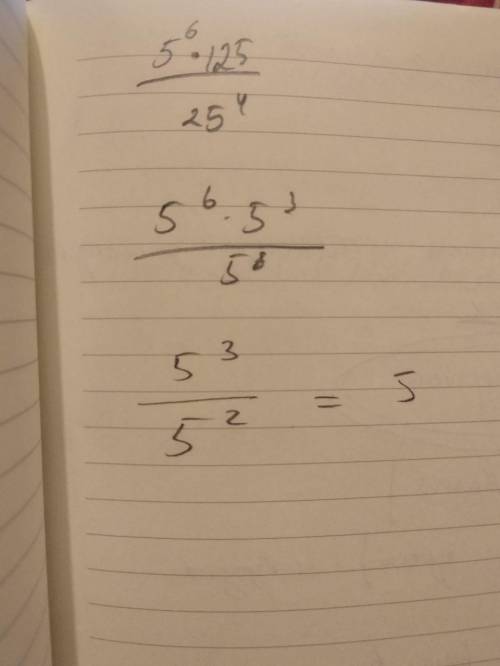 5⁶·125
25⁴
5⁶·5³
5⁸
5³
5² = 5